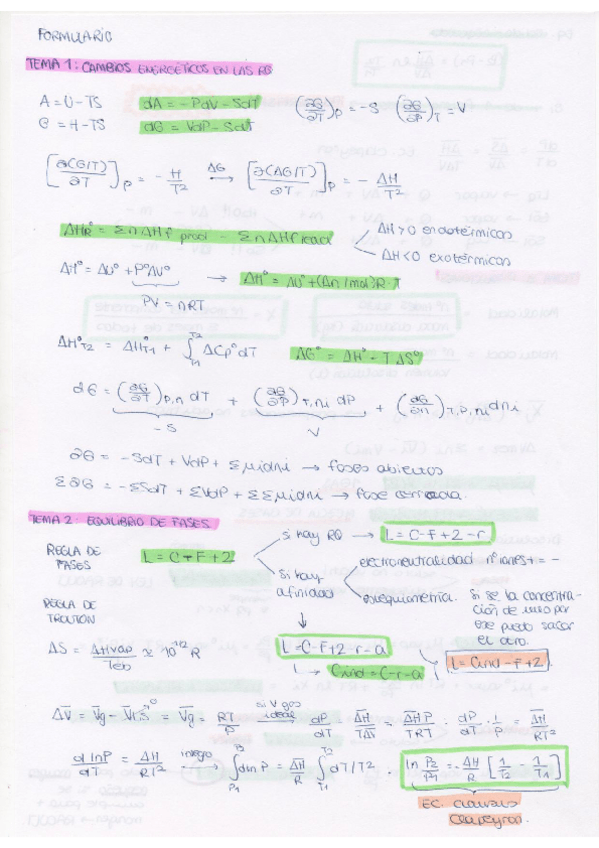 FORMULARIO
TEMA 1: CAMBIOS ENERGÉTICOS EN LAS RQ
A = U - TS   dA = - PdV - SdT   (∂G/∂T)P = -S   (∂G/∂P)T = V
G = H - TS   dG = VdP - SdT
[∂(G/T)/∂T]P = - H/T²   ΔG→   [∂(ΔG/T)/∂T]P = - ΔH/T²
ΔHR° = Σ n ΔHf prod - Σ n ΔHf react
ΔH>0 endotérmicos
ΔH<0 exotérmicos
ΔH° = ΔU° + P°ΔV° → ΔH° = ΔU° + (Δn/mol) R·T
PV = nRT
ΔH°T2 = ΔH°T1 + ∫T1T2 ΔCp° dT   ΔG° = ΔH° - TΔS°
∂G = (∂G/∂T)P,n dT + (∂G/∂P)T,ni dP + (∂G/∂n)T,P,ni dni
-S   V
∂G = -SdT + VdP + Σμidni → fases abiertos
Σ∂G = -ΣSdT + ΣVdP + ΣΣμidni → fase cerrada.
TEMA 2: EQUILIBRIO DE FASES
REGLA DE FASES   L = C - F + 2
si hay RQ → L = C - F + 2 - r
si hay afinidad
electroneutralidad nº iones + = -
estequiometría. Si se la concentración de uno por ese puedo sacar el otro.
REGLA DE TROUTON
ΔS = ΔHvap/Teb ≈ 10 1/2 R
L = C - F + 2 - r - a
Cind = C - r - a
L = Cind - F + 2
ΔV̄ = V̄g - V̄L,S = V̄g = RT/P   si V gas ideal →   dP/dT = ΔH̄/TΔV̄ = ΔH̄P/TRT ; dP/dT · 1/P = ΔH̄/RT²
d lnP/dT = ΔH̄/RT²   integro →   ∫P1P2 dlnP = ΔH̄/R ∫T1T2 dT/T².   ln P2/P1 = - ΔH/R [1/T2 - 1/T1]
EC. Clausius
Clapeyron.